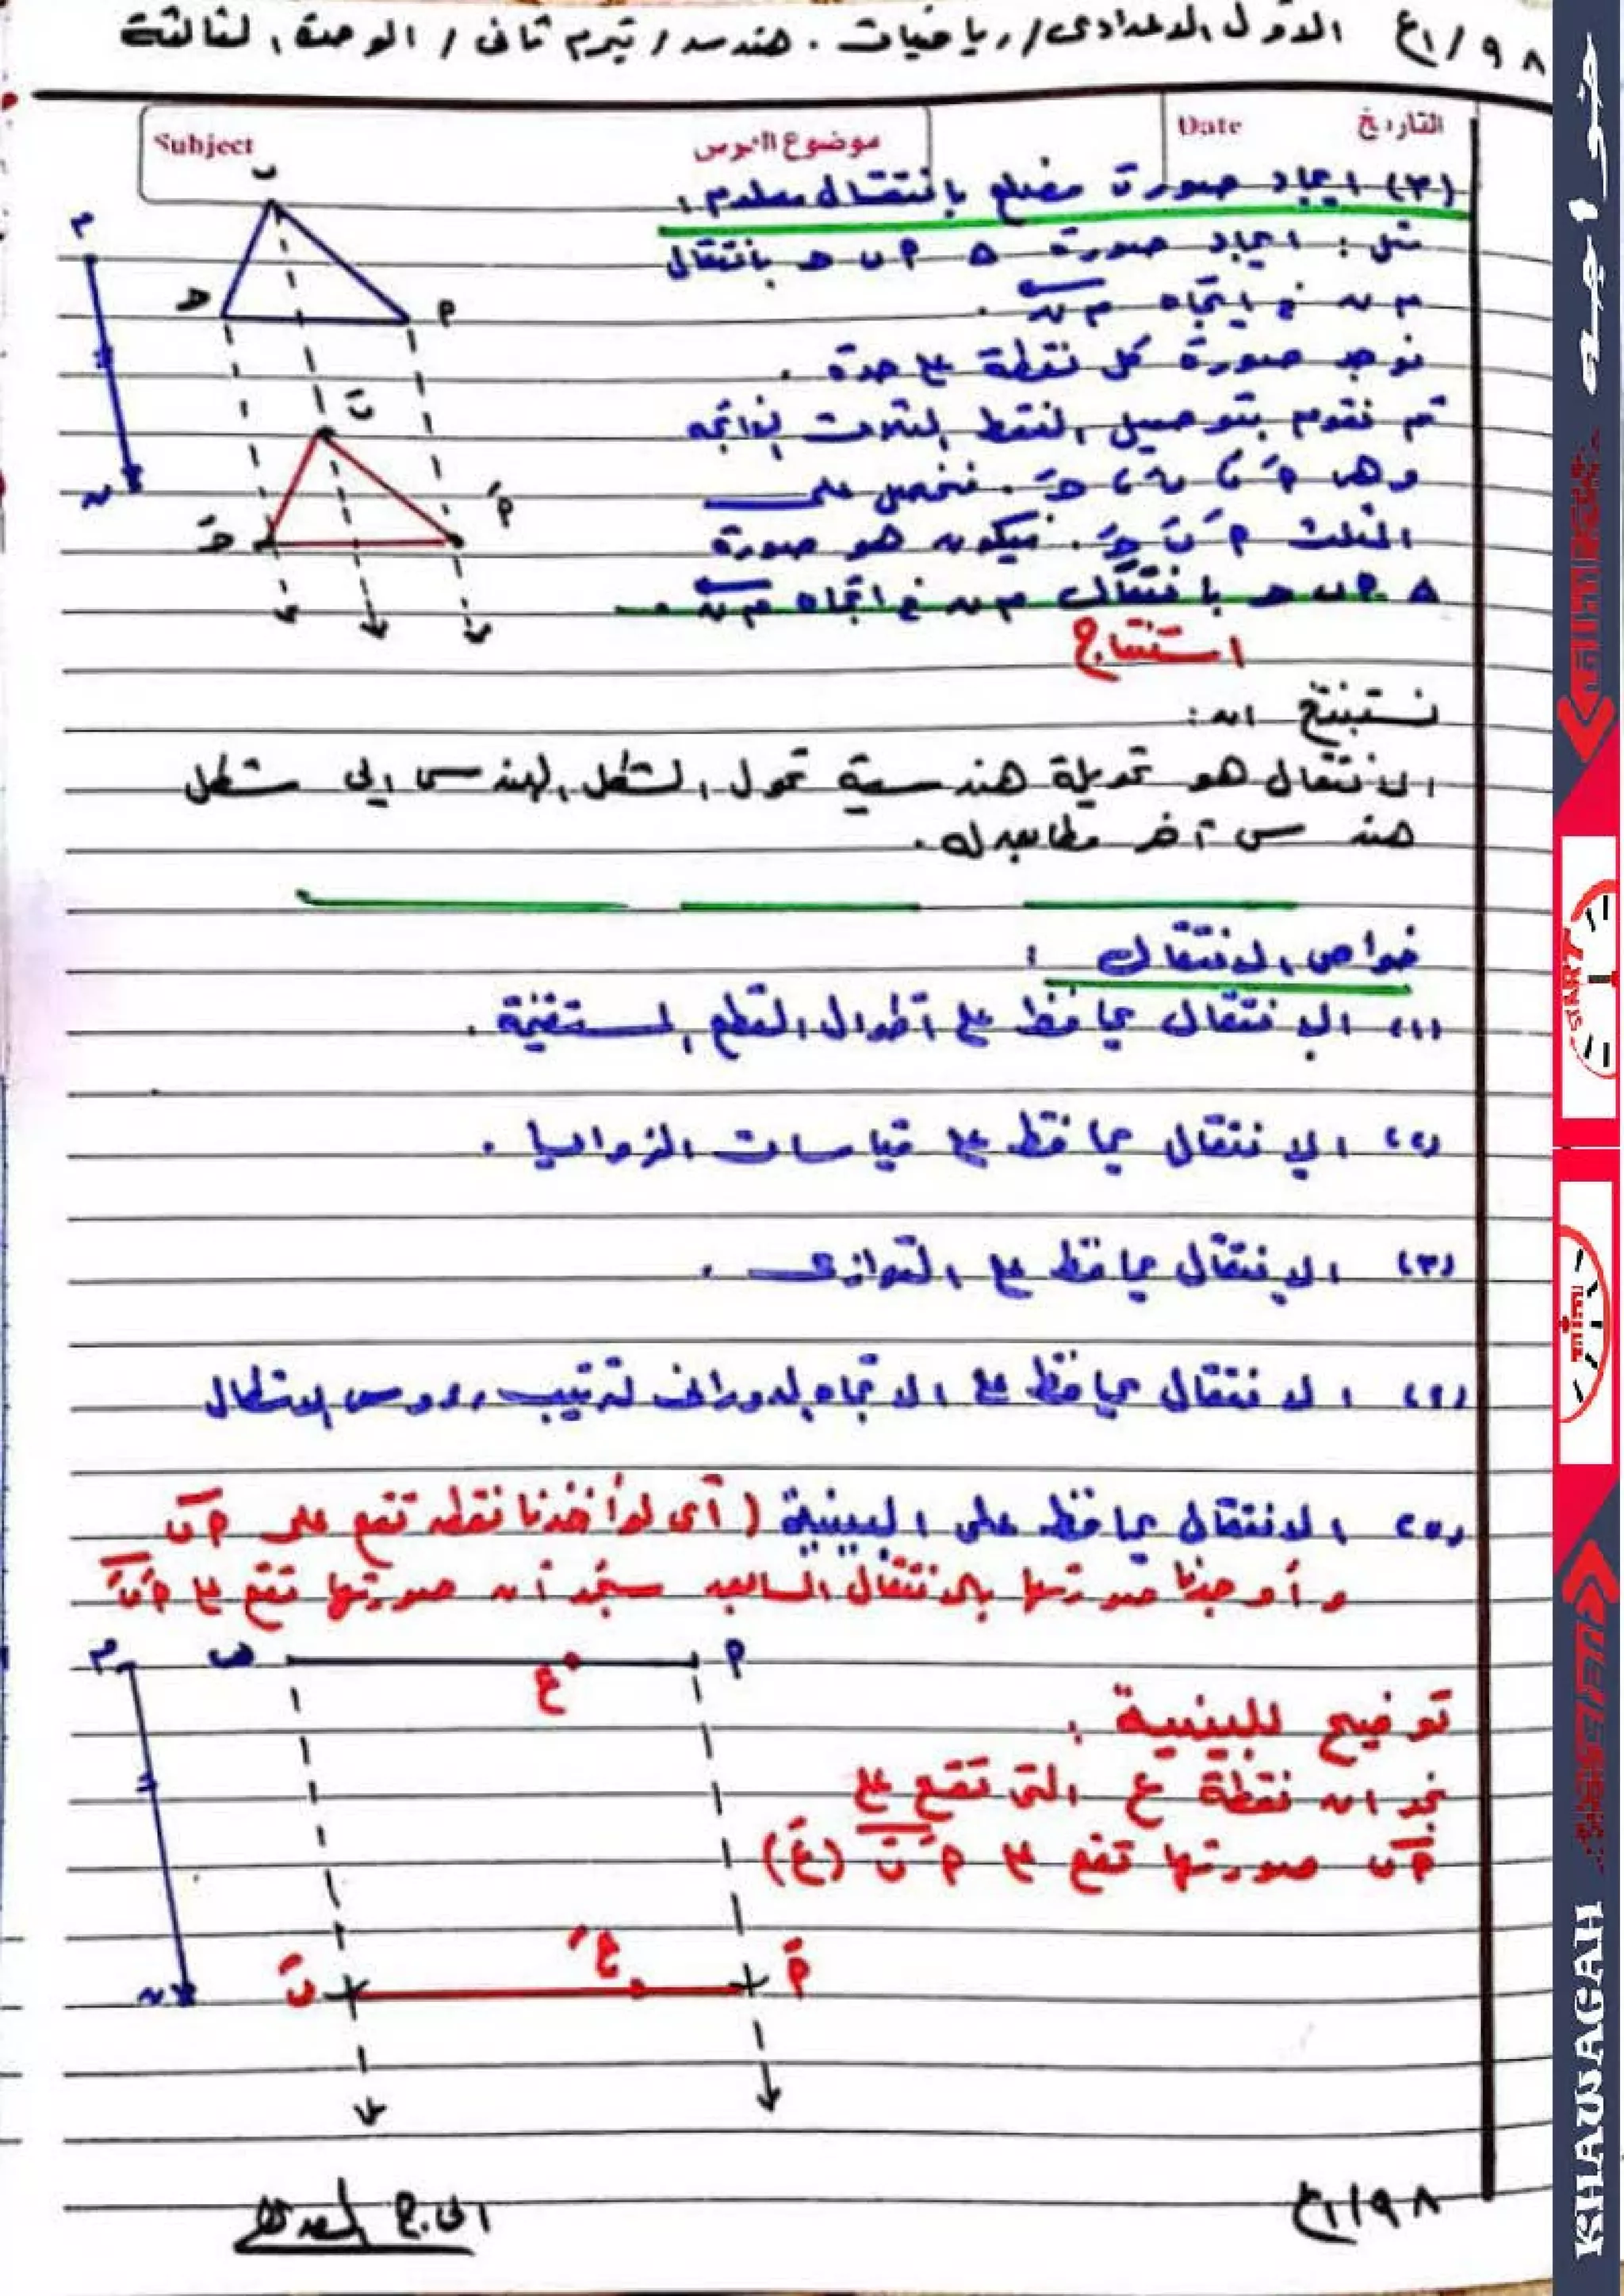 ٩٨ / ع١ الأول الاعدادى / رياضيات . هندسه / تيرم ثانى / الوحدة الثالثة
Subject موضوع الدرس Date التاريخ
(٣) ايجاد صورة مضلع بانتقال معلوم :
مثل : ايجاد صورة △ ٢ ب ح بانتقال
م ن فى اتجاه م ن .
نوجد صورة كل نقطة على حدة .
ثم نقوم بتوصيل النقط الثلاث الناتجه
وهى ٢َ ، بَ ، حَ . فنحصل على
المثلث ٢َ بَ حَ . فيكون هو صورة
△ ٢ ب ح بانتقال م ن فى اتجاه م ن .
ب
م
ح
٢
بَ
ن
٢َ
حَ
استنتاج
نستنتج ان :
الانتقال هو تحويلة هندسية تحول الشكل الهندسى الى شكل
هندسى آخر مطابق له .
خواص الانتقال :
(١) الانتقال يحافظ على أطوال القطع المستقيمة .
(٢) الانتقال يحافظ على قياسات الزوايا .
(٣) الانتقال يحافظ على التوازى .
(٤) الانتقال يحافظ على الاتجاه الدورانى لترتيب رءوس الاشكال
(٥) الانتقال يحافظ على البينية ( أى لو أخذنا نقطه تقع على ٢ ب
و أوجدنا صورتها بالانتقال السابق سنجد أن صورتها تقع على ٢َ بَ
م
ب
ع
٢
توضيح للبينية :
نجد ان نقطة ع التى تقع على
٢ ب صورتها تقع على ٢َ بَ (عَ)
ن
بَ
عَ
٢َ
٩٨ / ع١
خواجه
START
KHAWAGAH